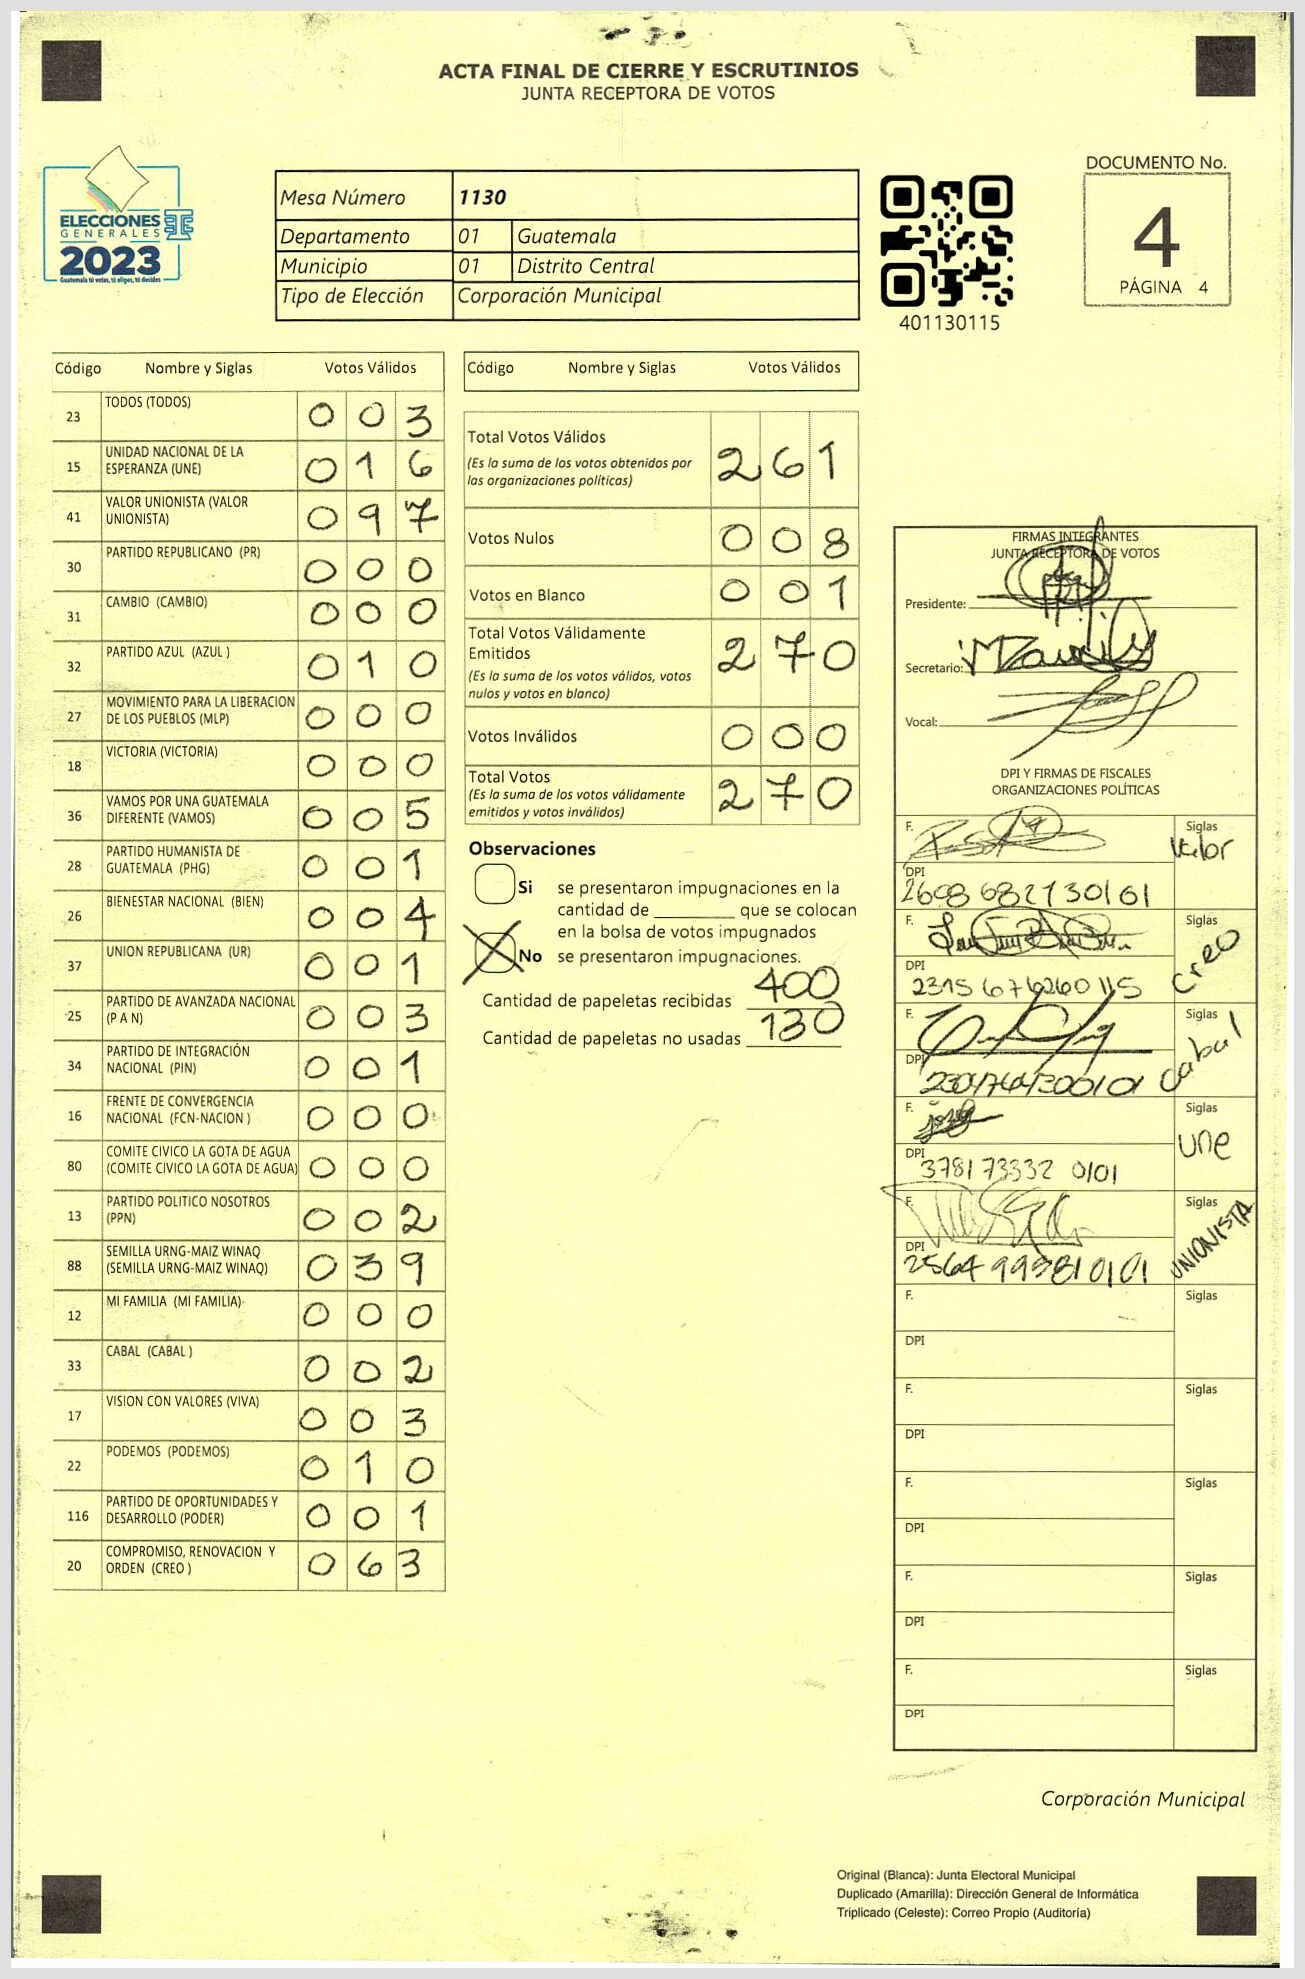 ACTA FINAL DE CIERRE Y ESCRUTINIOS
JUNTA RECEPTORA DE VOTOS
ELECCIONES
GENERALES
2023
Guatemala tú votas, tú eliges, tú decides
Mesa Número 1130
Departamento 01 Guatemala
Municipio 01 Distrito Central
Tipo de Elección Corporación Municipal
401130115
DOCUMENTO No.
4
PÁGINA 4
Código Nombre y Siglas Votos Válidos
23 TODOS (TODOS) 0 0 3
15 UNIDAD NACIONAL DE LA
ESPERANZA (UNE) 0 1 6
41 VALOR UNIONISTA (VALOR
UNIONISTA) 0 9 7
30 PARTIDO REPUBLICANO (PR) 0 0 0
31 CAMBIO (CAMBIO) 0 0 0
32 PARTIDO AZUL (AZUL ) 0 1 0
27 MOVIMIENTO PARA LA LIBERACION
DE LOS PUEBLOS (MLP) 0 0 0
18 VICTORIA (VICTORIA) 0 0 0
36 VAMOS POR UNA GUATEMALA
DIFERENTE (VAMOS) 0 0 5
28 PARTIDO HUMANISTA DE
GUATEMALA (PHG) 0 0 1
26 BIENESTAR NACIONAL (BIEN) 0 0 4
37 UNION REPUBLICANA (UR) 0 0 1
25 PARTIDO DE AVANZADA NACIONAL
(P A N) 0 0 3
34 PARTIDO DE INTEGRACIÓN
NACIONAL (PIN) 0 0 1
16 FRENTE DE CONVERGENCIA
NACIONAL (FCN-NACION ) 0 0 0
80 COMITE CIVICO LA GOTA DE AGUA
(COMITE CIVICO LA GOTA DE AGUA) 0 0 0
13 PARTIDO POLITICO NOSOTROS
(PPN) 0 0 2
88 SEMILLA URNG-MAIZ WINAQ
(SEMILLA URNG-MAIZ WINAQ) 0 3 9
12 MI FAMILIA (MI FAMILIA) 0 0 0
33 CABAL (CABAL ) 0 0 2
17 VISION CON VALORES (VIVA) 0 0 3
22 PODEMOS (PODEMOS) 0 1 0
116 PARTIDO DE OPORTUNIDADES Y
DESARROLLO (PODER) 0 0 1
20 COMPROMISO, RENOVACION Y
ORDEN (CREO ) 0 6 3
Código Nombre y Siglas Votos Válidos
Total Votos Válidos 2 6 1
(Es la suma de los votos obtenidos por
las organizaciones políticas)
Votos Nulos 0 0 8
Votos en Blanco 0 0 1
Total Votos Válidamente
Emitidos 2 7 0
(Es la suma de los votos válidos, votos
nulos y votos en blanco)
Votos Inválidos 0 0 0
Total Votos 2 7 0
(Es la suma de los votos válidamente
emitidos y votos inválidos)
Observaciones
Si se presentaron impugnaciones en la
cantidad de ________ que se colocan
en la bolsa de votos impugnados
No se presentaron impugnaciones.
Cantidad de papeletas recibidas 400
Cantidad de papeletas no usadas 130
FIRMAS INTEGRANTES
JUNTA RECEPTORA DE VOTOS
Presidente:
Secretario:
Vocal:
DPI Y FIRMAS DE FISCALES
ORGANIZACIONES POLÍTICAS
F. Siglas
Valor
DPI
F. Siglas
Creo
DPI
F. Siglas
Cabal
DPI
F. Siglas
une
DPI
378173332 0101
F. Siglas
UNIONISTA
DPI
2564 99381 0101
F. Siglas
DPI
F. Siglas
DPI
F. Siglas
DPI
F. Siglas
DPI
F. Siglas
DPI
Corporación Municipal
Original (Blanca): Junta Electoral Municipal
Duplicado (Amarilla): Dirección General de Informática
Triplicado (Celeste): Correo Propio (Auditoría)